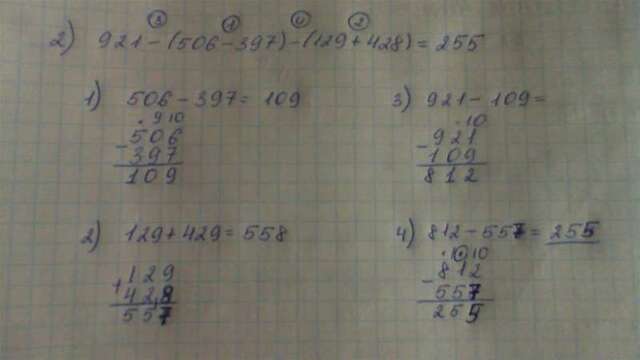 ③ ① ④ ②
2) 921-(506-397)-(129+428)=255
1) 506-397=109
. 9 10
- 506
397
109
2) 129+429=558
+ 129
428
557
3) 921-109=
. 10
- 921
109
812
4) 812-557=255
. 10 10
- 812
557
255